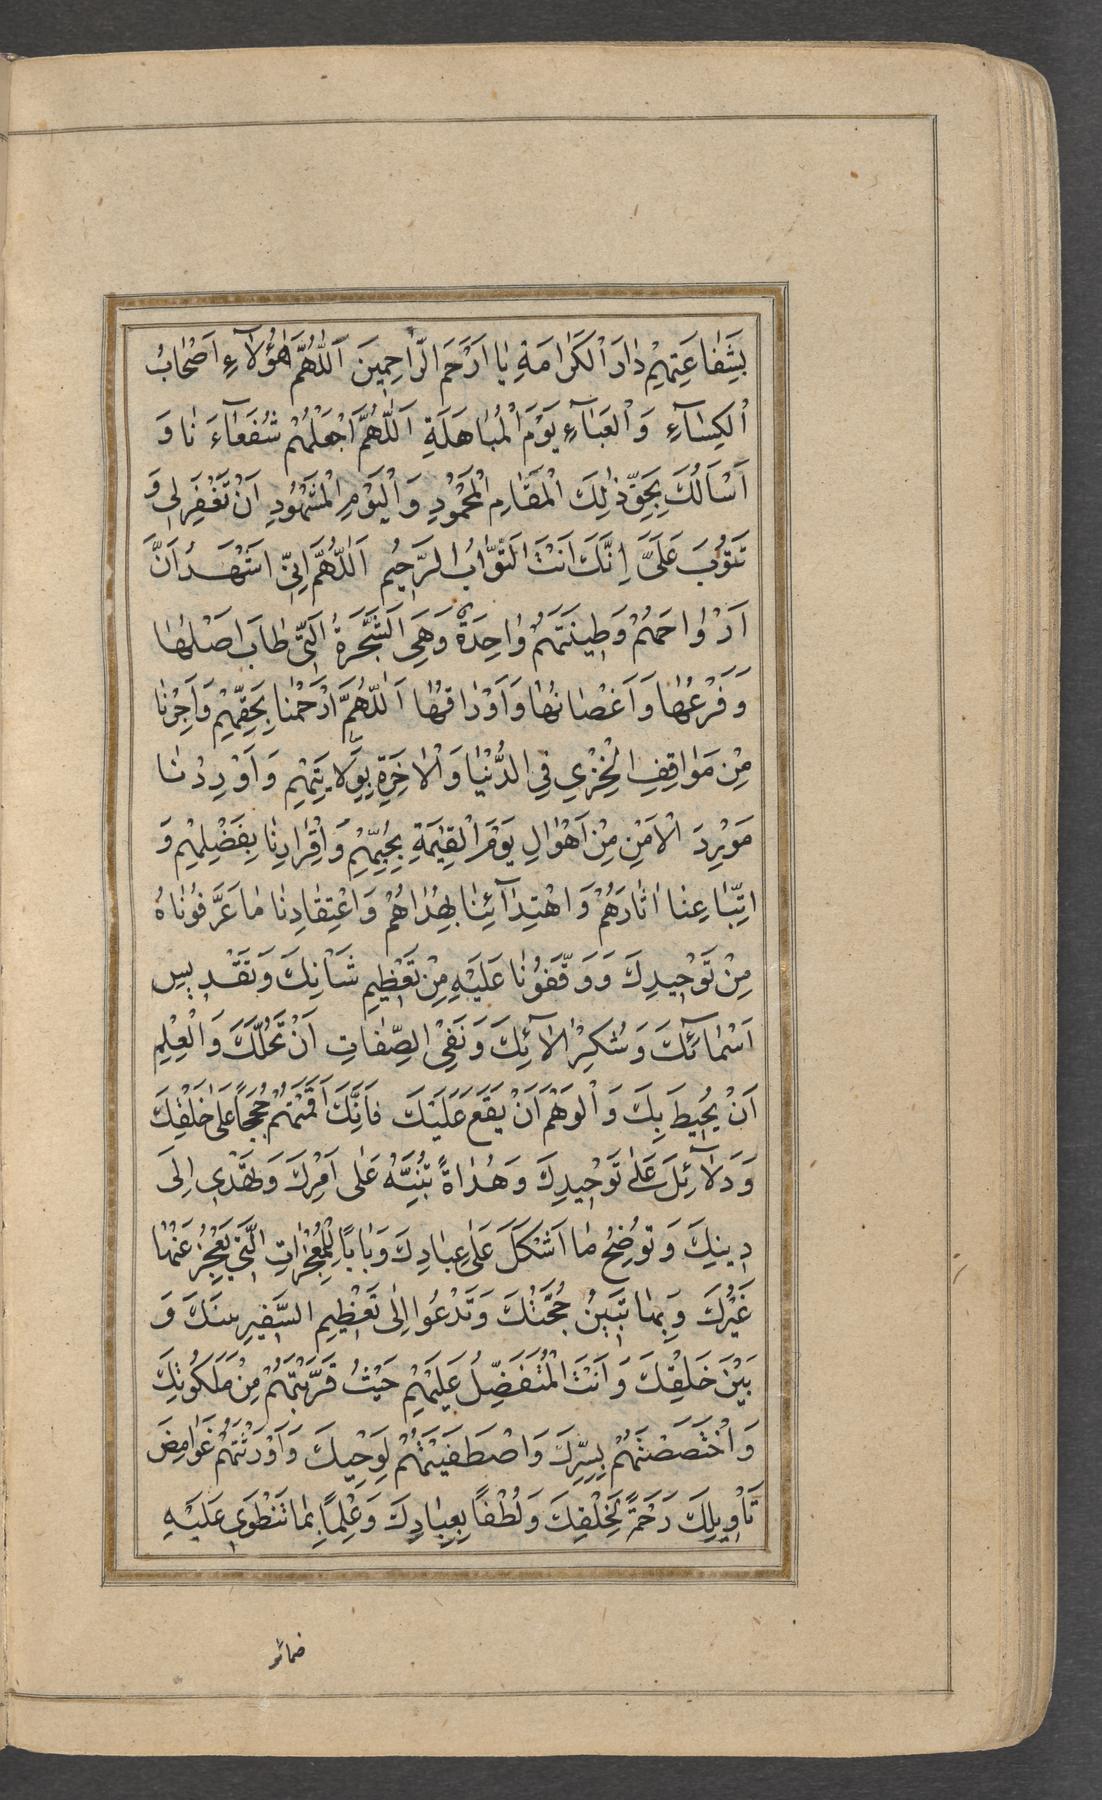 بِشَفٰاعَتِهِمْ دٰارَ الْكَرٰامَةِ يٰا اَرْحَمَ الرّٰاحِمِينَ اَللّٰهُمَّ هٰؤُلآءِ اَصْحٰابُ
الْكِسٰآءِ وَ الْعَبٰآءِ يَوْمَ الْمُبٰاهَلَةِ اَللّٰهُمَّ اجْعَلْهُمْ شُفَعٰآءَ نٰا وَ
اَسْاَلُكَ بِحَقِّ ذٰلِكَ الْمَقٰامِ الْمَحْمُودِ وَ الْيَوْمِ الْمَشْهُودِ اَنْ تَغْفِرَ لِى وَ
تَتُوبَ عَلَىَّ اِنَّكَ اَنْتَ التَّوّٰابُ الرَّحِيمُ اَللّٰهُمَّ اِنِّى اَشْهَدُ اَنَّ
اَرْوٰاحَهُمْ وَ طِينَتَهُمْ وٰاحِدَةٌ وَ هِىَ الشَّجَرَةُ الَّتِى طٰابَ اَصْلُهٰا
وَ فَرْعُهٰا وَ اَغْصٰانُهٰا وَ اَوْرٰاقُهٰا اَللّٰهُمَّ ارْحَمْنٰا بِحَقِّهِمْ وَ اَجِرْنٰا
مِنْ مَوٰاقِفِ الْخِزْيِ فِي الدُّنْيٰا وَ الْاٰخِرَةِ بِوِلٰايَتِهِمْ وَ اَوْرِدْنٰا
مَوْرِدَ الْاَمْنِ مِنْ اَهْوٰالِ يَوْمِ الْقِيٰمَةِ بِحُبِّهِمْ وَ اِقْرٰارِنٰا بِفَضْلِهِمْ وَ
اتِّبٰاعِنٰا اٰثٰارَهُمْ وَ اهْتِدٰآئِنٰا بِهُدٰاهُمْ وَ اعْتِقٰادِنٰا مٰا عَرَّفُونٰاهُ
مِنْ تَوْحِيدِكَ وَ وَقَّفُونٰا عَلَيْهِ مِنْ تَعْظِيمِ شَاْنِكَ وَ تَقْدِيسِ
اَسْمٰآئِكَ وَ شُكْرِ اٰلٰآئِكَ وَ نَفْىِ الصِّفٰاتِ اَنْ تَحُلَّكَ وَ الْعِلْمِ
اَنْ يُحِيطَ بِكَ وَ الْوَهْمِ اَنْ يَقَعَ عَلَيْكَ فَاِنَّكَ اَقَمْتَهُمْ حُجَجًا عَلٰى خَلْقِكَ
وَ دَلٰآئِلَ عَلٰى تَوْحِيدِكَ وَ هُدٰاةً تُنَبِّهُ عَلٰى اَمْرِكَ وَ تَهْدِى اِلٰى
دِينِكَ وَ تُوضِحُ مٰا اَشْكَلَ عَلٰى عِبٰادِكَ وَ بٰابًا لِلْمُعْجِزٰاتِ الَّتِى يَعْجِزُ عَنْهٰا
غَيْرُكَ وَ بِهٰا تَبِينُ حُجَّتُكَ وَ تَدْعُوا اِلٰى تَعْظِيمِ السَّفِيرِ بينَكَ وَ
بَيْنَ خَلْقِكَ وَ اَنْتَ الْمُتَفَضِّلُ عَلَيْهِمْ حَيْثُ قَرَّبْتَهُمْ مِنْ مَلَكُوتِكَ
وَ اخْتَصَصْتَهُمْ بِسِرِّكَ وَ اصْطَفَيْتَهُمْ لِوَحْيِكَ وَ اَوْرَثْتَهُمْ غَوٰامِضَ
تَاْوِيلِكَ رَحْمَةً لِخَلْقِكَ وَ لُطْفًا بِعِبٰادِكَ وَ عِلْمًا بِمٰا تَنْطَوِى عَلَيْهِ
ضمائر